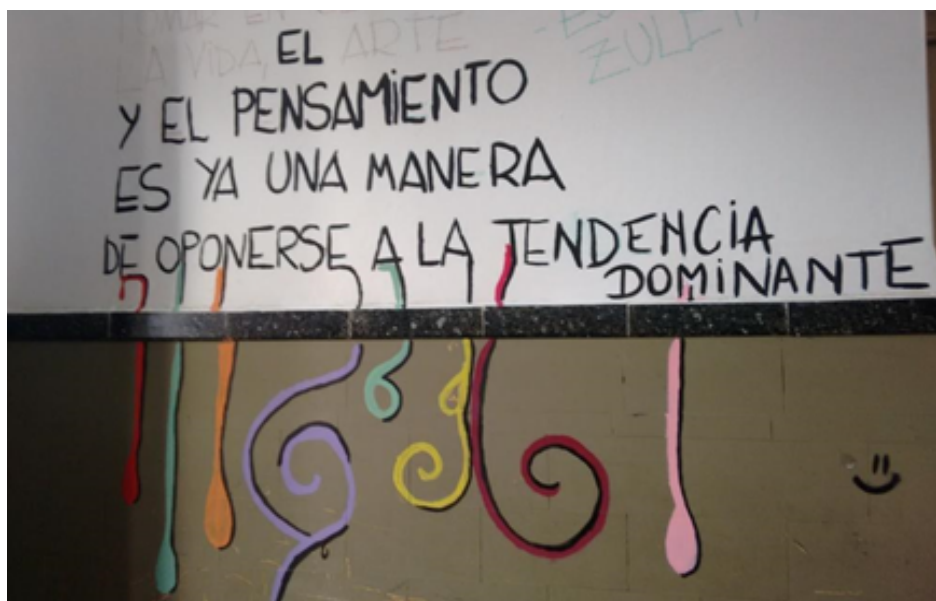 TOMAR EN
LA VIDA, EL ARTE
ZULETA
Y EL PENSAMiENTO
ES YA UNA MANERA
DE OPONERSE A LA TENDENCiA
DOMiNANTE